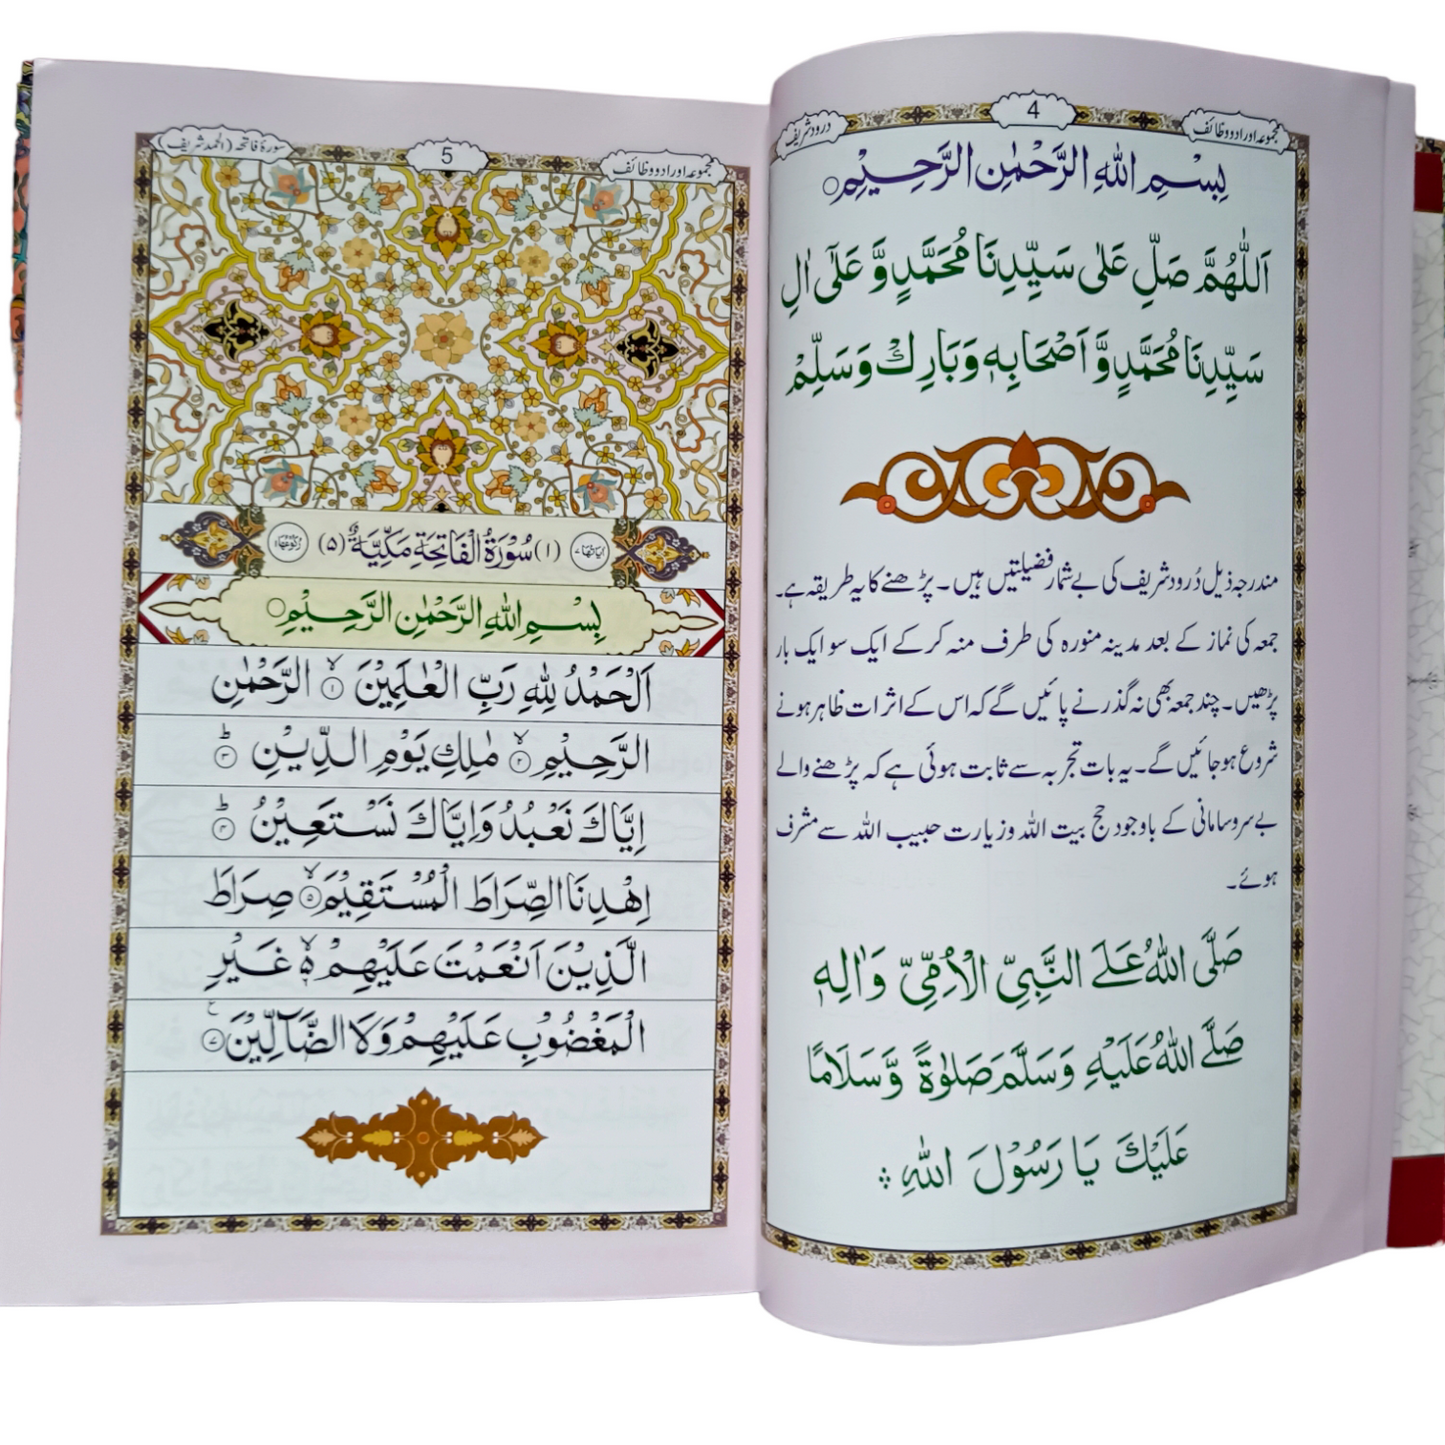 مجموعہ اوراد و وظائف
4
درود شریف
بِسْمِ اللهِ الرَّحْمٰنِ الرَّحِيْمِ○
اَللّٰهُمَّ صَلِّ عَلٰى سَيِّدِنَا مُحَمَّدٍ وَّ عَلٰٓى اٰلِ
سَيِّدِنَا مُحَمَّدٍ وَّ اَصْحَابِهٖ وَبَارِكْ وَسَلِّمْ
مندرجہ ذیل دُرود شریف کی بے شمار فضیلتیں ہیں۔ پڑھنے کا یہ طریقہ ہے۔
جمعہ کی نماز کے بعد مدینہ منورہ کی طرف منہ کرکے ایک سو ایک بار
پڑھیں۔ چند جمعہ بھی نہ گذرنے پائیں گے کہ اس کے اثرات ظاہر ہونے
شروع ہوجائیں گے۔ یہ بات تجربہ سے ثابت ہوئی ہے کہ پڑھنے والے
بے سروسامانی کے باوجود حج بیت اللہ و زیارت حبیب اللہ سے مشرف
ہوئے۔
صَلَّى اللهُ عَلَى النَّبِيِّ الْاُمِّيِّ وَاٰلِهٖ
صَلَّى اللهُ عَلَيْهِ وَسَلَّمَ صَلٰوةً وَّسَلَامًا
عَلَيْكَ يَا رَسُوْلَ اللهِ
مجموعہ اوراد و وظائف
5
سورۃ فاتحہ (الحمد شریف)
اٰیاتها ٧ (١) سُوْرَةُ الْفَاتِحَةِ مَكِّيَّةٌ (٥) رکوعها ١
بِسْمِ اللهِ الرَّحْمٰنِ الرَّحِيْمِ○
اَلْحَمْدُ لِلّٰهِ رَبِّ الْعٰلَمِيْنَ ۙ﴿١﴾ الرَّحْمٰنِ
الرَّحِيْمِ ۙ﴿٢﴾ مٰلِكِ يَوْمِ الدِّيْنِ ؕ﴿٣﴾
اِيَّاكَ نَعْبُدُ وَاِيَّاكَ نَسْتَعِيْنُ ؕ﴿٤﴾
اِهْدِنَا الصِّرَاطَ الْمُسْتَقِيْمَ ۙ﴿٥﴾ صِرَاطَ
الَّذِيْنَ اَنْعَمْتَ عَلَيْهِمْ ۙ۬ غَيْرِ
الْمَغْضُوْبِ عَلَيْهِمْ وَلَا الضَّآلِّيْنَ ﴿٧﴾